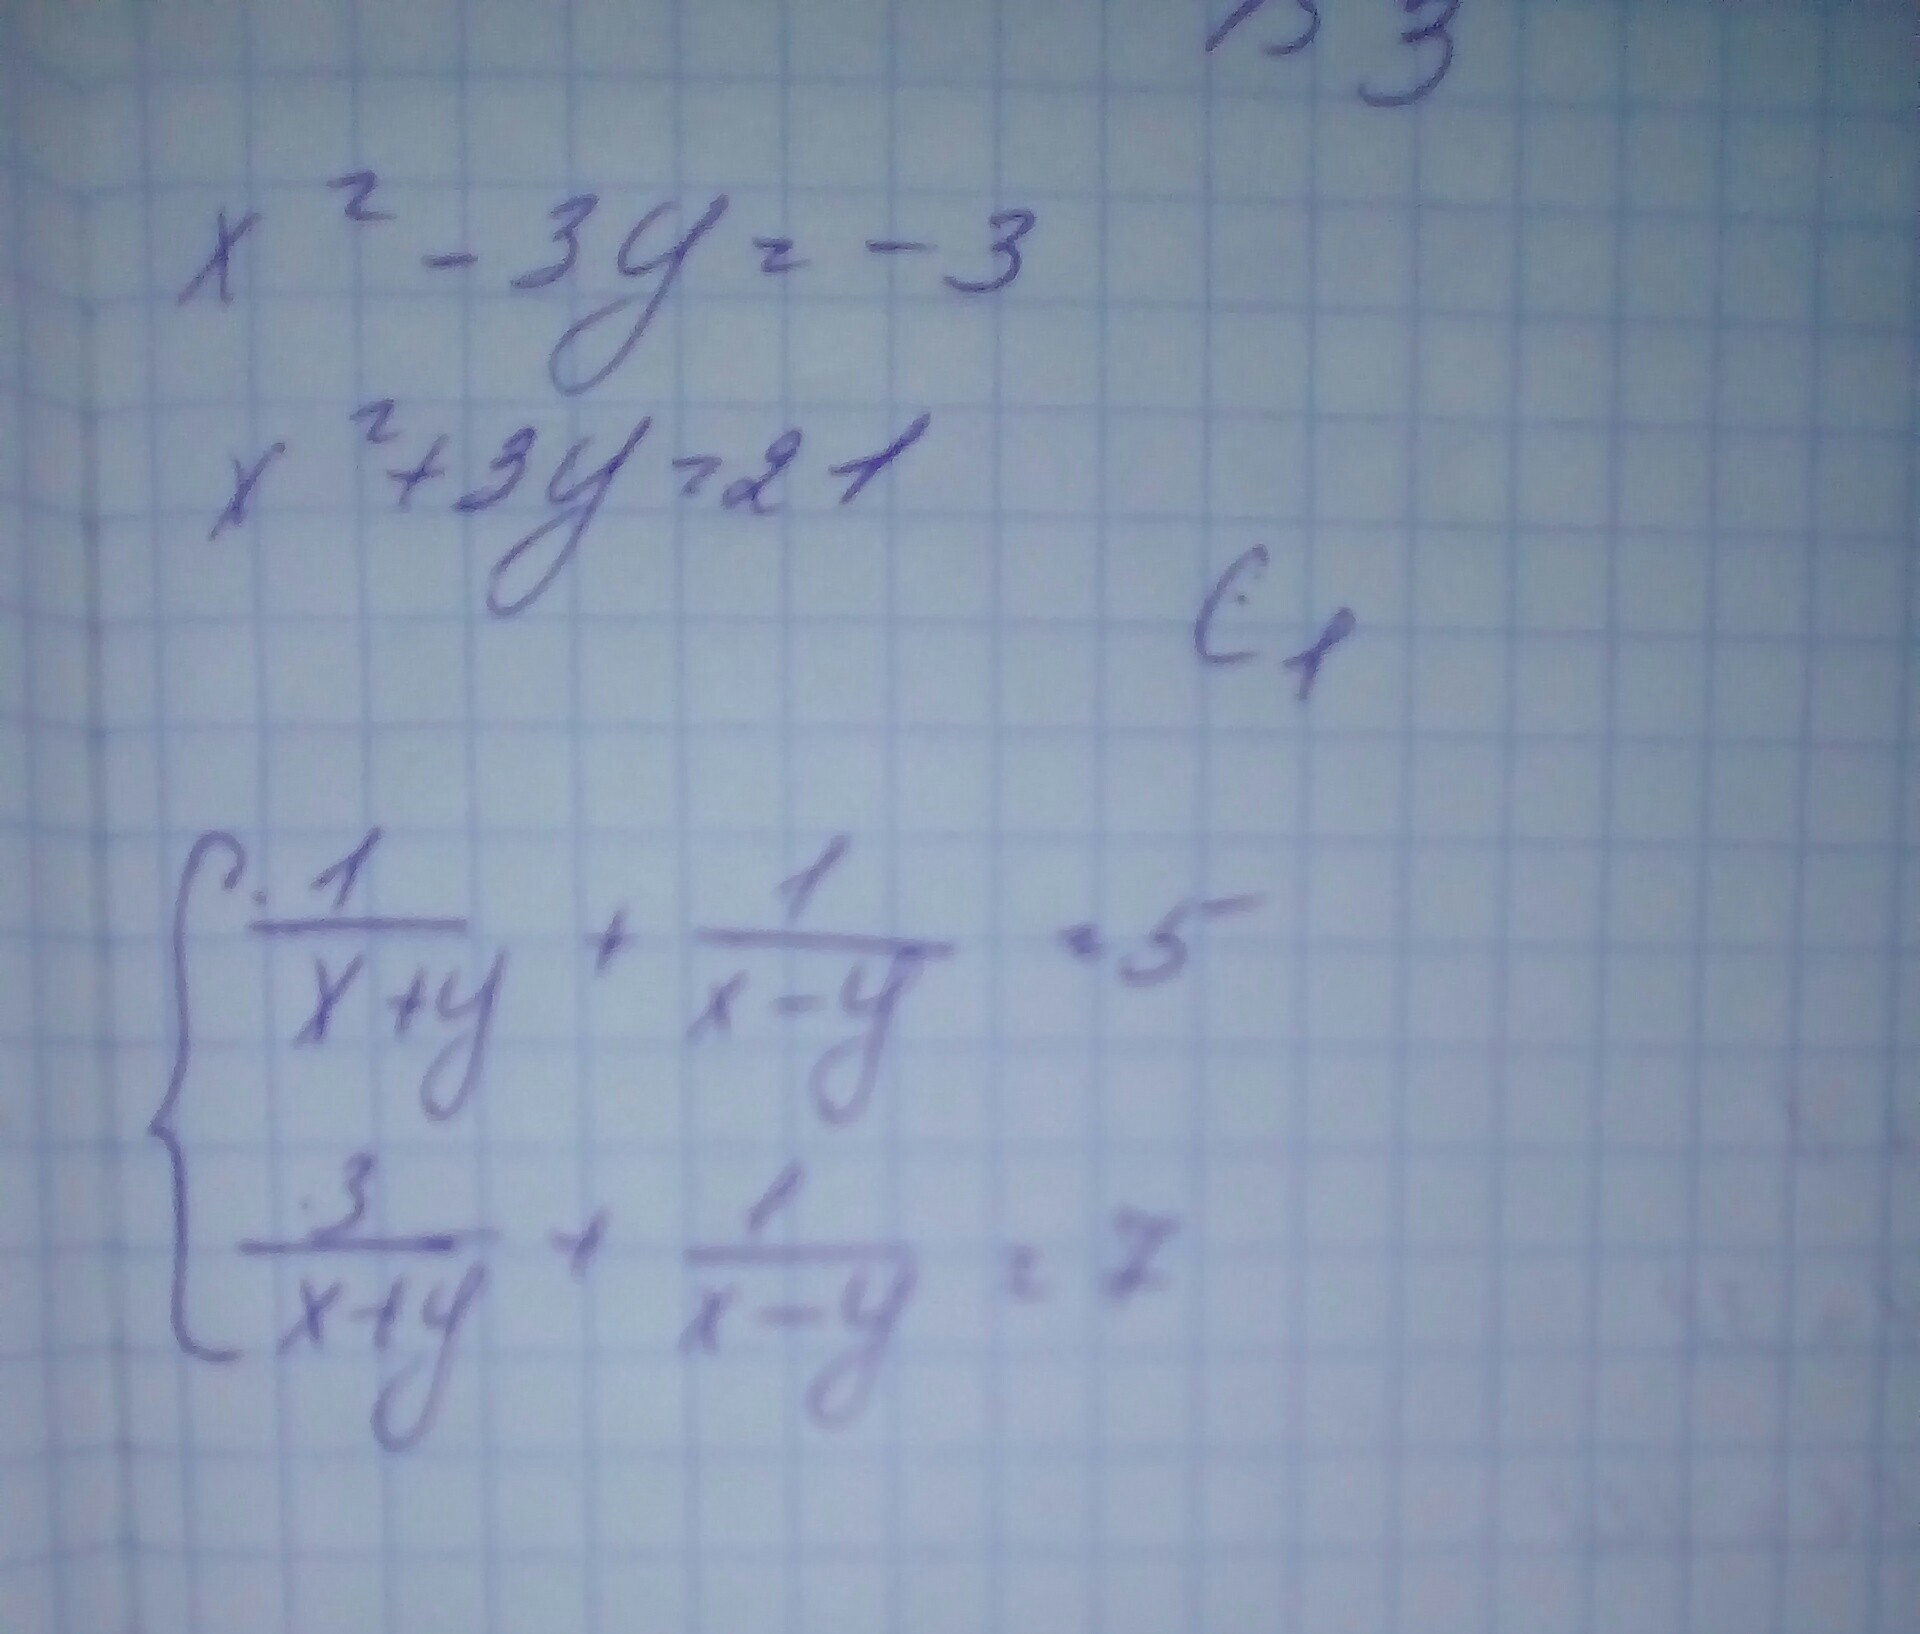 В3
x² - 3y = -3
x² + 3y = 21
C1
1/(x+y) + 1/(x-y) = 5
3/(x+y) + 1/(x-y) = 7